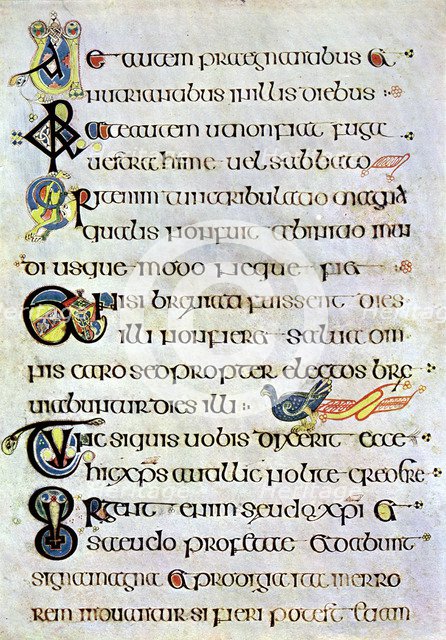 Uae autem praegnantibus &
nutrientibus inillis diebus
Orate autem ut non fiat fuga
uestra hieme uel sabbato
Erit enim tunc tribulatio magna
qualis non fuit ab initio mun
di usque modo neque fiet
Et nisi breuiati fuissent dies
illi non fieret salua om
nis caro sed propter electos bre
uiabuntur dies illi :
Tunc siquis uobis dixerit ecce
hic xps aut illic nolite credere
Surgent enim seudoxpi &
seudo profetae & dabunt
signa magna & prodigia ita ut in erro
rem inducantur si fieri potest etiam